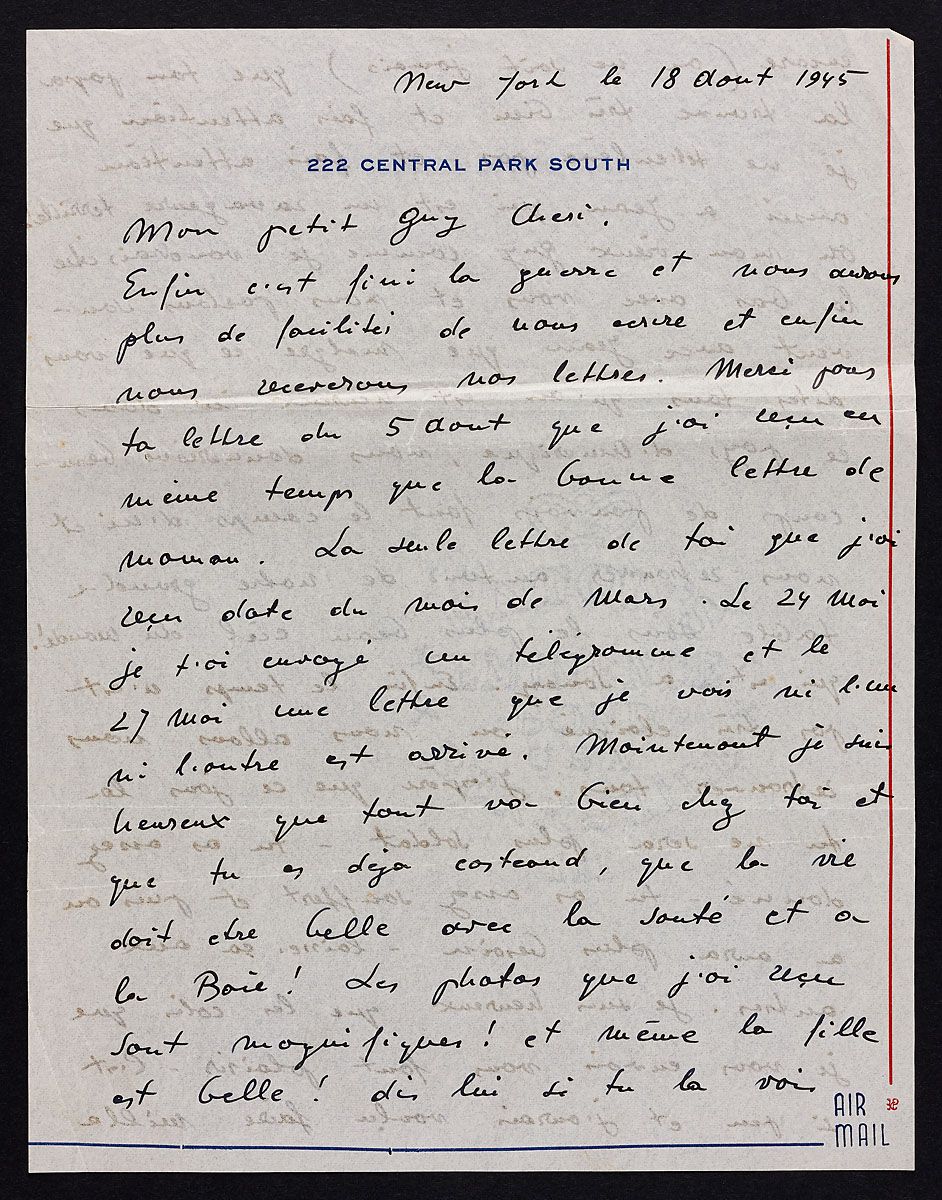 New York le 18 Aout 1945
222 CENTRAL PARK SOUTH
Mon petit Guy Cheri.
Enfin c'est fini la guerre et nous aurons
plus de facilités de nous ecrire et enfin
nous recevrons nos lettres. Merci pour
ta lettre du 5 Aout que j'ai reçu en
même temps que la bonne lettre de
maman. La seule lettre de toi que j'ai
reçu date du mois de Mars. Le 24 Mai
je t'ai envoyé un télégramme et le
27 Mai une lettre que je vois ni l'un
ni l'autre est arrivé. Maintenant je suis
heureux que tout va bien chez toi et
que tu es deja costeaud, que la vie
doit etre belle avec la santé et a
la Baie! Les photos que j'ai reçu
sont magnifiques! et même la fille
est belle! dis lui si tu la vois
AIR
MAIL